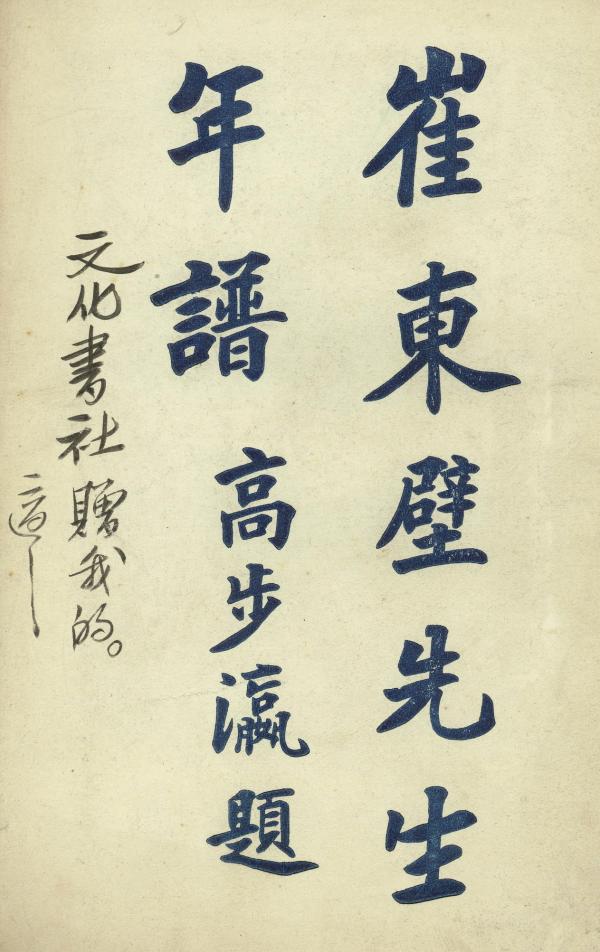 崔東壁先生
年譜 高步瀛題
文化書社贈我的。
適